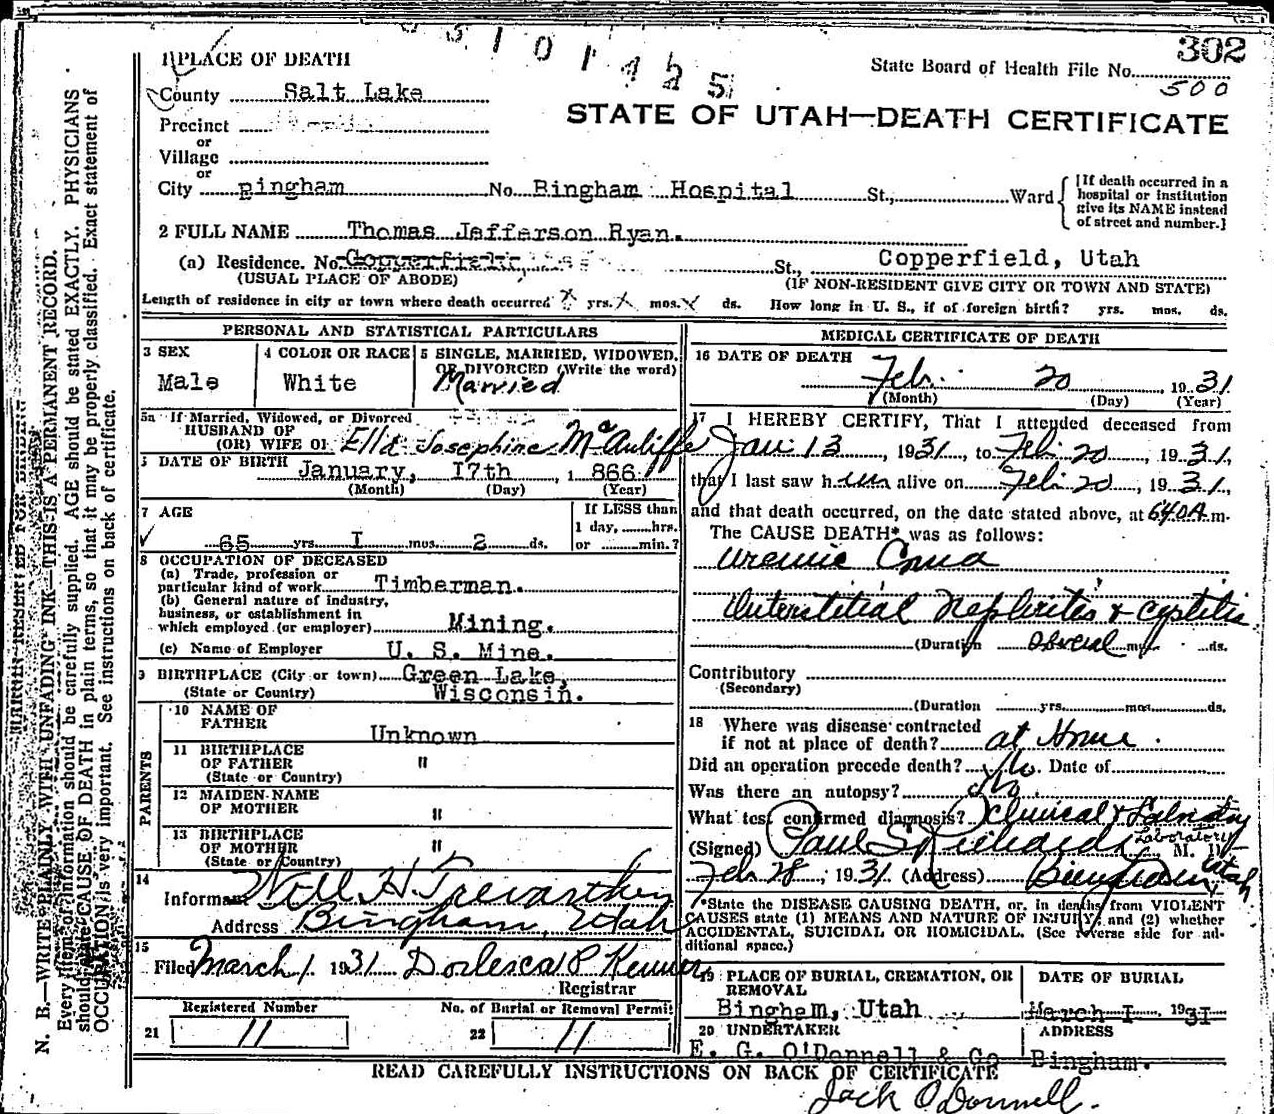 302
5101425
1 PLACE OF DEATH
State Board of Health File No.
500
County Salt Lake
STATE OF UTAH—DEATH CERTIFICATE
Precinct
or
Village
or
City Bingham No. Bingham Hospital St., Ward
[If death occurred in a hospital or institution give its NAME instead of street and number.]
2 FULL NAME Thomas Jefferson Ryan.
(a) Residence. No. Copperfield, St., Copperfield, Utah
(USUAL PLACE OF ABODE) (IF NON-RESIDENT GIVE CITY OR TOWN AND STATE)
Length of residence in city or town where death occurred yrs. mos. ds. How long in U. S., if of foreign birth? yrs. mos. ds.
PERSONAL AND STATISTICAL PARTICULARS
3 SEX
Male
4 COLOR OR RACE
White
5 SINGLE, MARRIED, WIDOWED,
OR DIVORCED (Write the word)
Married
5a If Married, Widowed, or Divorced
HUSBAND OF
(OR) WIFE OF Ella Josephine McAuliffe
DATE OF BIRTH January, I7th , 1866
(Month) (Day) (Year)
7 AGE
If LESS than
1 day, hrs.
or min.?
65 yrs. I mos. 2 ds.
8 OCCUPATION OF DECEASED
(a) Trade, profession or
particular kind of work Timberman.
(b) General nature of industry,
business, or establishment in
which employed (or employer) Mining.
(c) Name of Employer U. S. Mine.
9 BIRTHPLACE (City or town) Green Lake,
(State or Country) Wisconsin.
PARENTS
10 NAME OF
FATHER Unknown
11 BIRTHPLACE
OF FATHER "
(State or Country)
12 MAIDEN NAME
OF MOTHER "
13 BIRTHPLACE
OF MOTHER "
(State or Country)
14
Informant Will H. Trevarthen
Address Bingham, Utah
15
Filed March 1 1931 Dorlesca P Kenner
Registrar
Registered Number No. of Burial or Removal Permit
21 11 22 11
MEDICAL CERTIFICATE OF DEATH
16 DATE OF DEATH
Feb. 20 , 1931
(Month) (Day) (Year)
17 I HEREBY CERTIFY, That I attended deceased from
Jan 13 , 1931, to Feb 20 , 1931,
that I last saw him alive on Feb 20 , 1931,
and that death occurred, on the date stated above, at 640A m.
The CAUSE DEATH* was as follows:
Uremic Coma
Interstitial Nephritis & cystitis
(Duration several ds.
Contributory
(Secondary)
(Duration yrs. mos. ds.
18 Where was disease contracted
if not at place of death? at Home.
Did an operation precede death? No. Date of
Was there an autopsy? No
What test confirmed diagnosis? Clinical &
Laboratory
(Signed) Paul S Richards M. D.
Feb 28, 1931 (Address) Bingham, Utah
*State the DISEASE CAUSING DEATH, or, in deaths from VIOLENT
CAUSES state (1) MEANS AND NATURE OF INJURY, and (2) whether
ACCIDENTAL, SUICIDAL OR HOMICIDAL. (See reverse side for ad-
ditional space.)
19 PLACE OF BURIAL, CREMATION, OR
REMOVAL
Bingham, Utah
DATE OF BURIAL
March I. 1931
20 UNDERTAKER
E. G. O'Donnell & Co
ADDRESS
Bingham.
READ CAREFULLY INSTRUCTIONS ON BACK OF CERTIFICATE
Jack O'Donnell.
N. B.—WRITE PLAINLY, WITH UNFADING INK—THIS IS A PERMANENT RECORD.
Every item of information should be carefully supplied. AGE should be stated EXACTLY. PHYSICIANS
should state CAUSE OF DEATH in plain terms, so that it may be properly classified. Exact statement of
OCCUPATION is very important. See instructions on back of certificate.
MARGIN RESERVED FOR BINDING